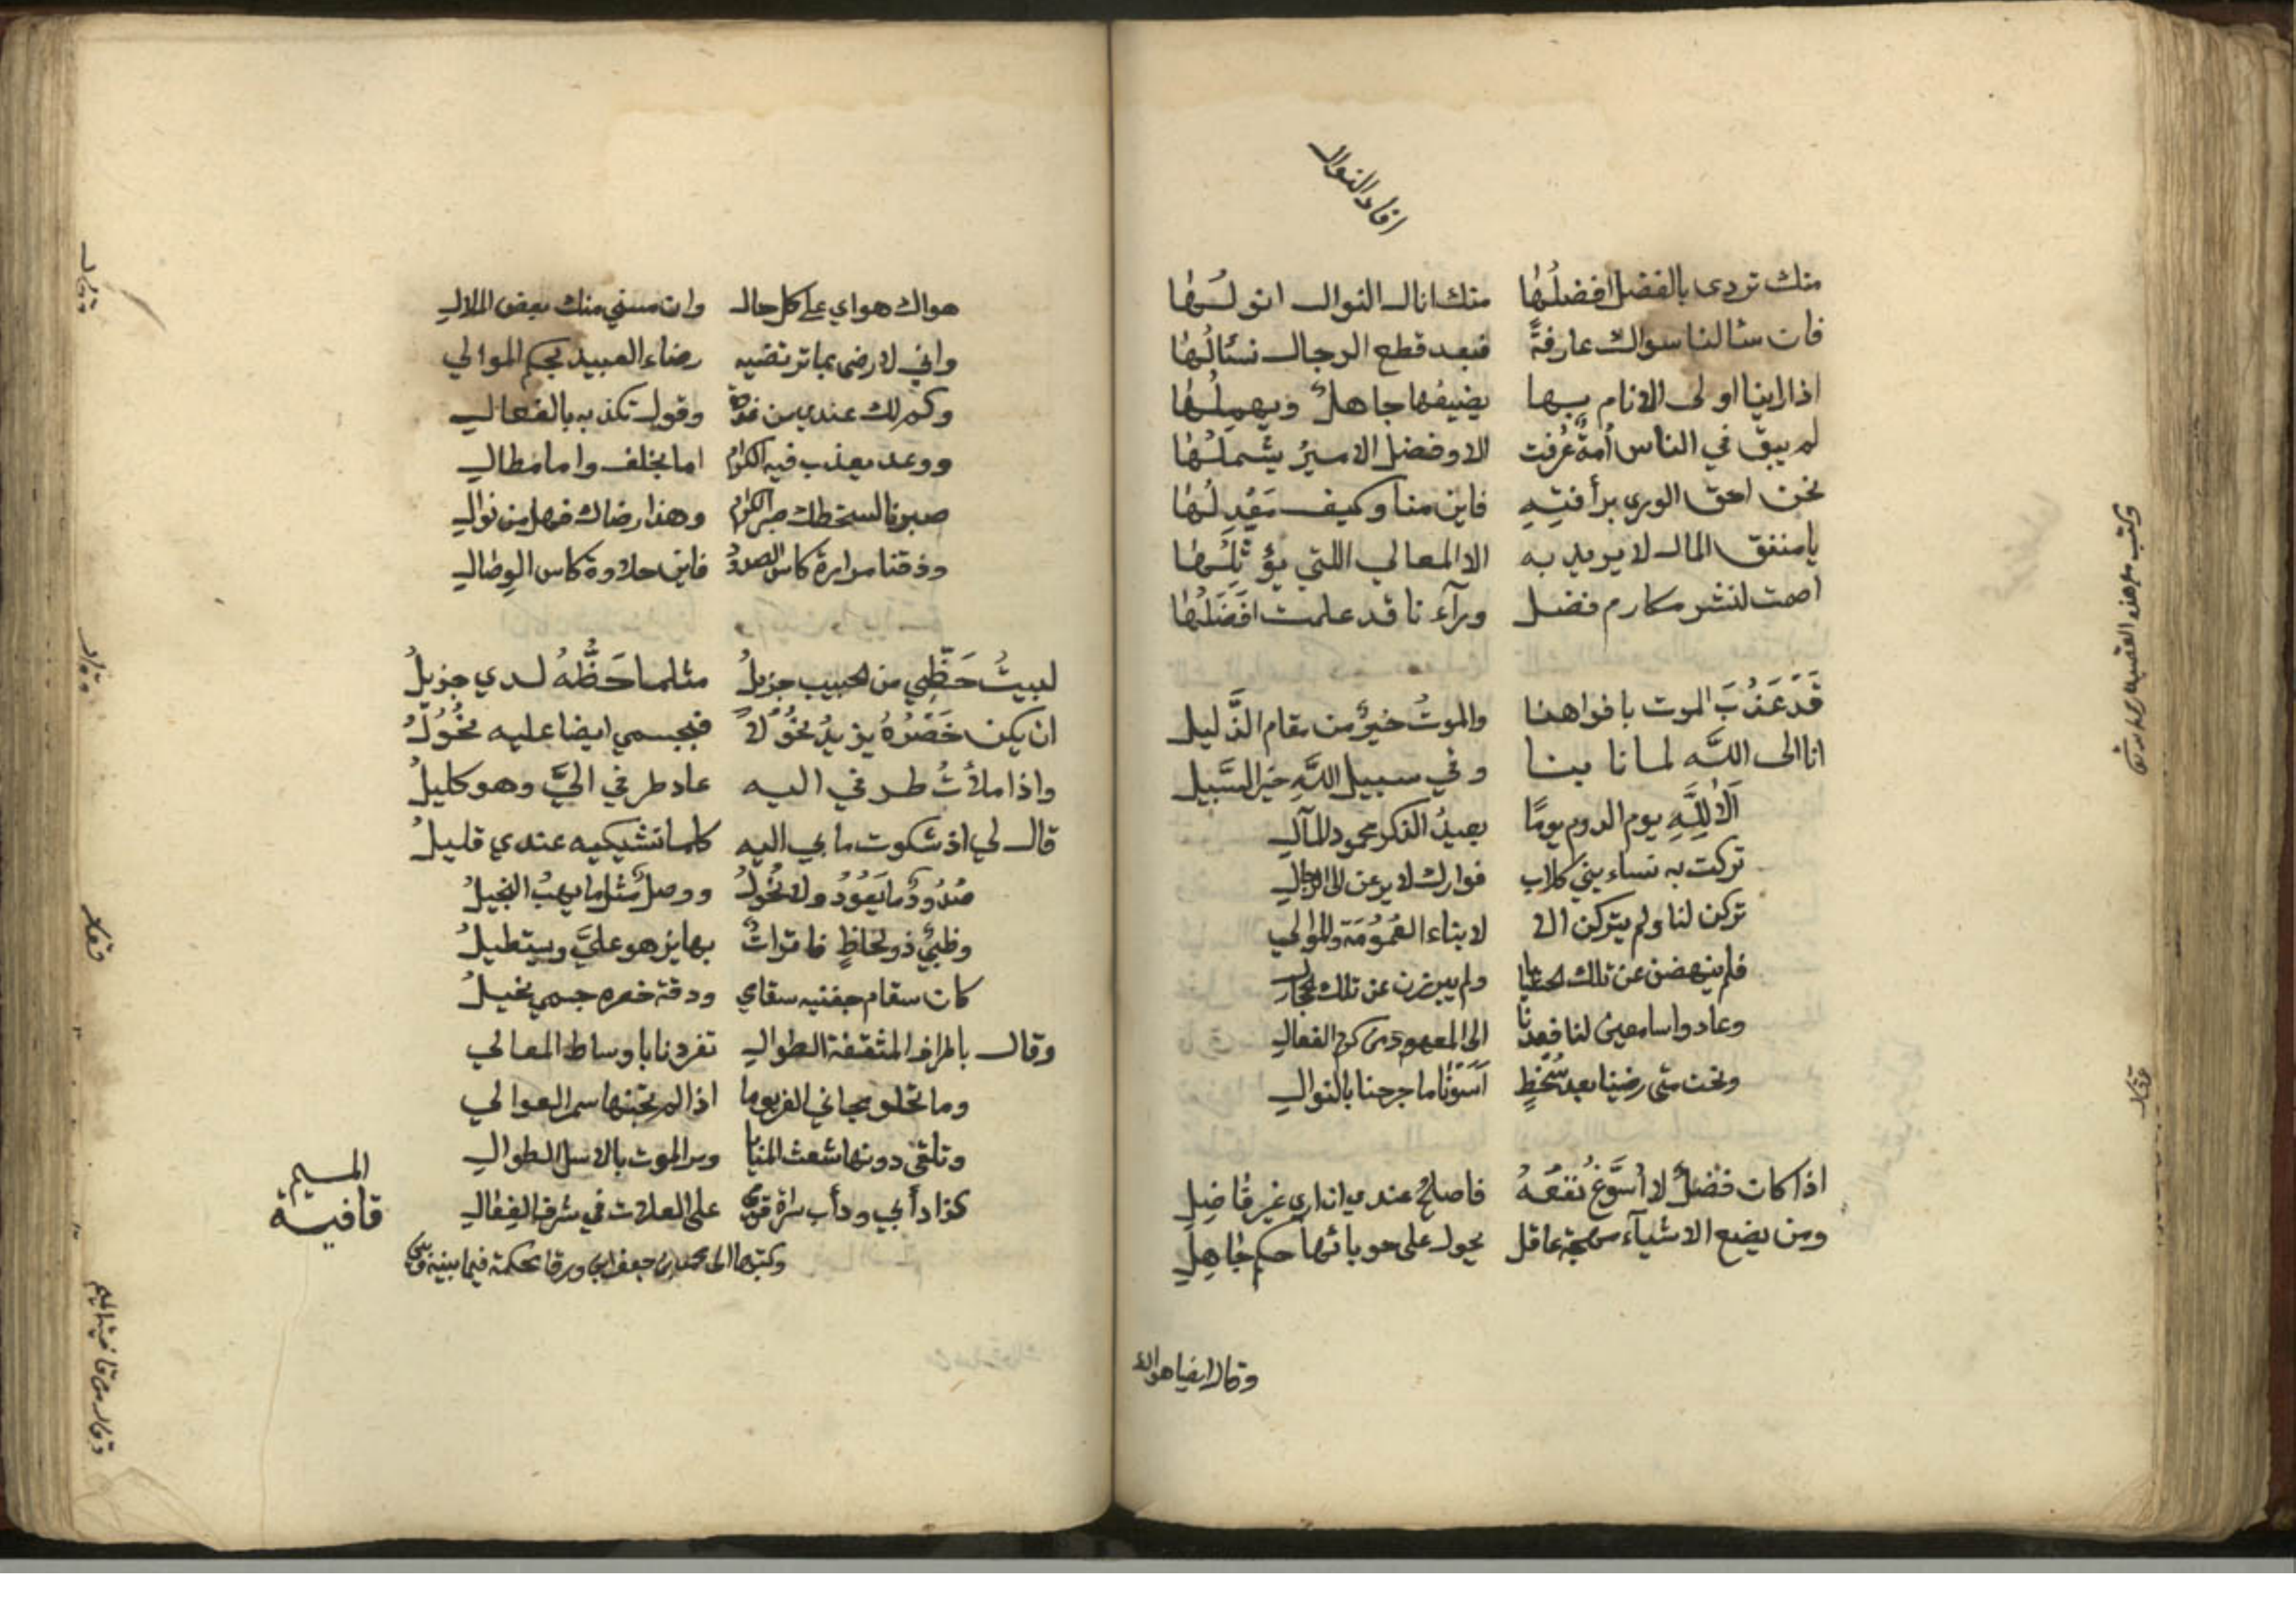 افاد النوال
منك تردى بالفضل افضلُها منك انال النوال انولها
فان سئالنا سواك عارفةً فبعد قطع الرجال نسئالُها
اذا راينا اولى الانام بها يضيفها جاهلٌ ويهملُها
لم يبق في الناس اُمةٌ عُرفت الا وفضل الاميرُ يشملُها
نحن احق الورى برأفتِهِ فاين منا وكيف مَعْدِلُها
يا منفق المال لا يريد به الا المعالي اللتي يؤثِلُها
اصمت لنشر مكارم فضل ورآء نا قد علمت افضَلُها
قَدَ عَذُبَ الموت بافواهنا والموتُ خيرٌ من مقام الذَّليل
انا الى اللّه لما نابنا وفي سبيل اللّهِ خير السَّبيل
اَلاَ لِلّهِ يوم الدوم يومًا بعيدُ الذكر محمود المآل
تركت به نساء بني كلاب فوارك لا يرعن الى الرجال
تركن لنا ولم يتركن الا لابناء العُمُوُمَة والموالي
فلم ينهضن عن تلك الحشايا ولم يبرزن عن تلك الحجال
وعادوا سامعين لنا فعدنا الى المعهود من كرم الفعال
ونحن متى رضينا بعد سُخطٍ اَسَوْنَا ما جرحنا بالنوال
اذا كان فضلٌ لا اُسَوّغُ نفعَهُ فاصلحُ عندي ان ارى غير فاضِلِ
ومن يضع الاشيآء مهجة عاقل يحول على حوبائها حكم جاهِلِ
وقال ايضا هواك
وكتب مع هذه القصيدة
وقال
هواك هواي على كل حال وان مسني منك بعض الملال
واني لارضى بما ترتضيه رضاء العبيد بحكم الموالي
وكم لك عندي من غدرة وقول تكذبه بالفعال
ووعد يعذب فيه الكرام اما بخلف واما مطال
صبرنا لسخطك صبر الكرام وهذا رضاك فهل من نوال
وذقنا مرارة كاس الصدود فاين حلاوة كاس الوصال
لبيتُ حَظِّي من الحبيب جزيلُ مثلما حَظُّهُ لدي جزيلُ
ان يكن خَصْرُهُ يزيدُ نحُوُلاً فبجسمي ايضا عليه نحُوُلُ
واذا ملأتُ طرفي اليه عاد طرفي اليَّ وهو كليلُ
قال لي اذ شكوت ما بي اليه كلما تشتكيه عندي قليلُ
صُدُودٌ ما يَعُوُدُ ولا يحُولُ ووصلٌ مثلما يهبُ البخيلُ
وظبيٌ ذو لحاظٍ فاتراتٌ بها يزهو عليَّ ويستطيلُ
كان سقام جفنيه سقامي ودقة خصره جسمي نحيلُ
وقال باطراف المثقفة الطوال تفردنا باوساط المعالي
وما تحلو مجاني العز يوما اذا لم تجنها سمر العوالي
وتلقى دونها شعث المنايا ومر الموت بالاسل الطوال
كذا دأبي ودأب سراة قومي على العلات في شرف الفعال
وكتب بها الى محمد بن جعفر ابن ورقا يحكمة فيما بينه وبين
قافية الميم
وقال
وقال
وقال
وقال من قافية الميم